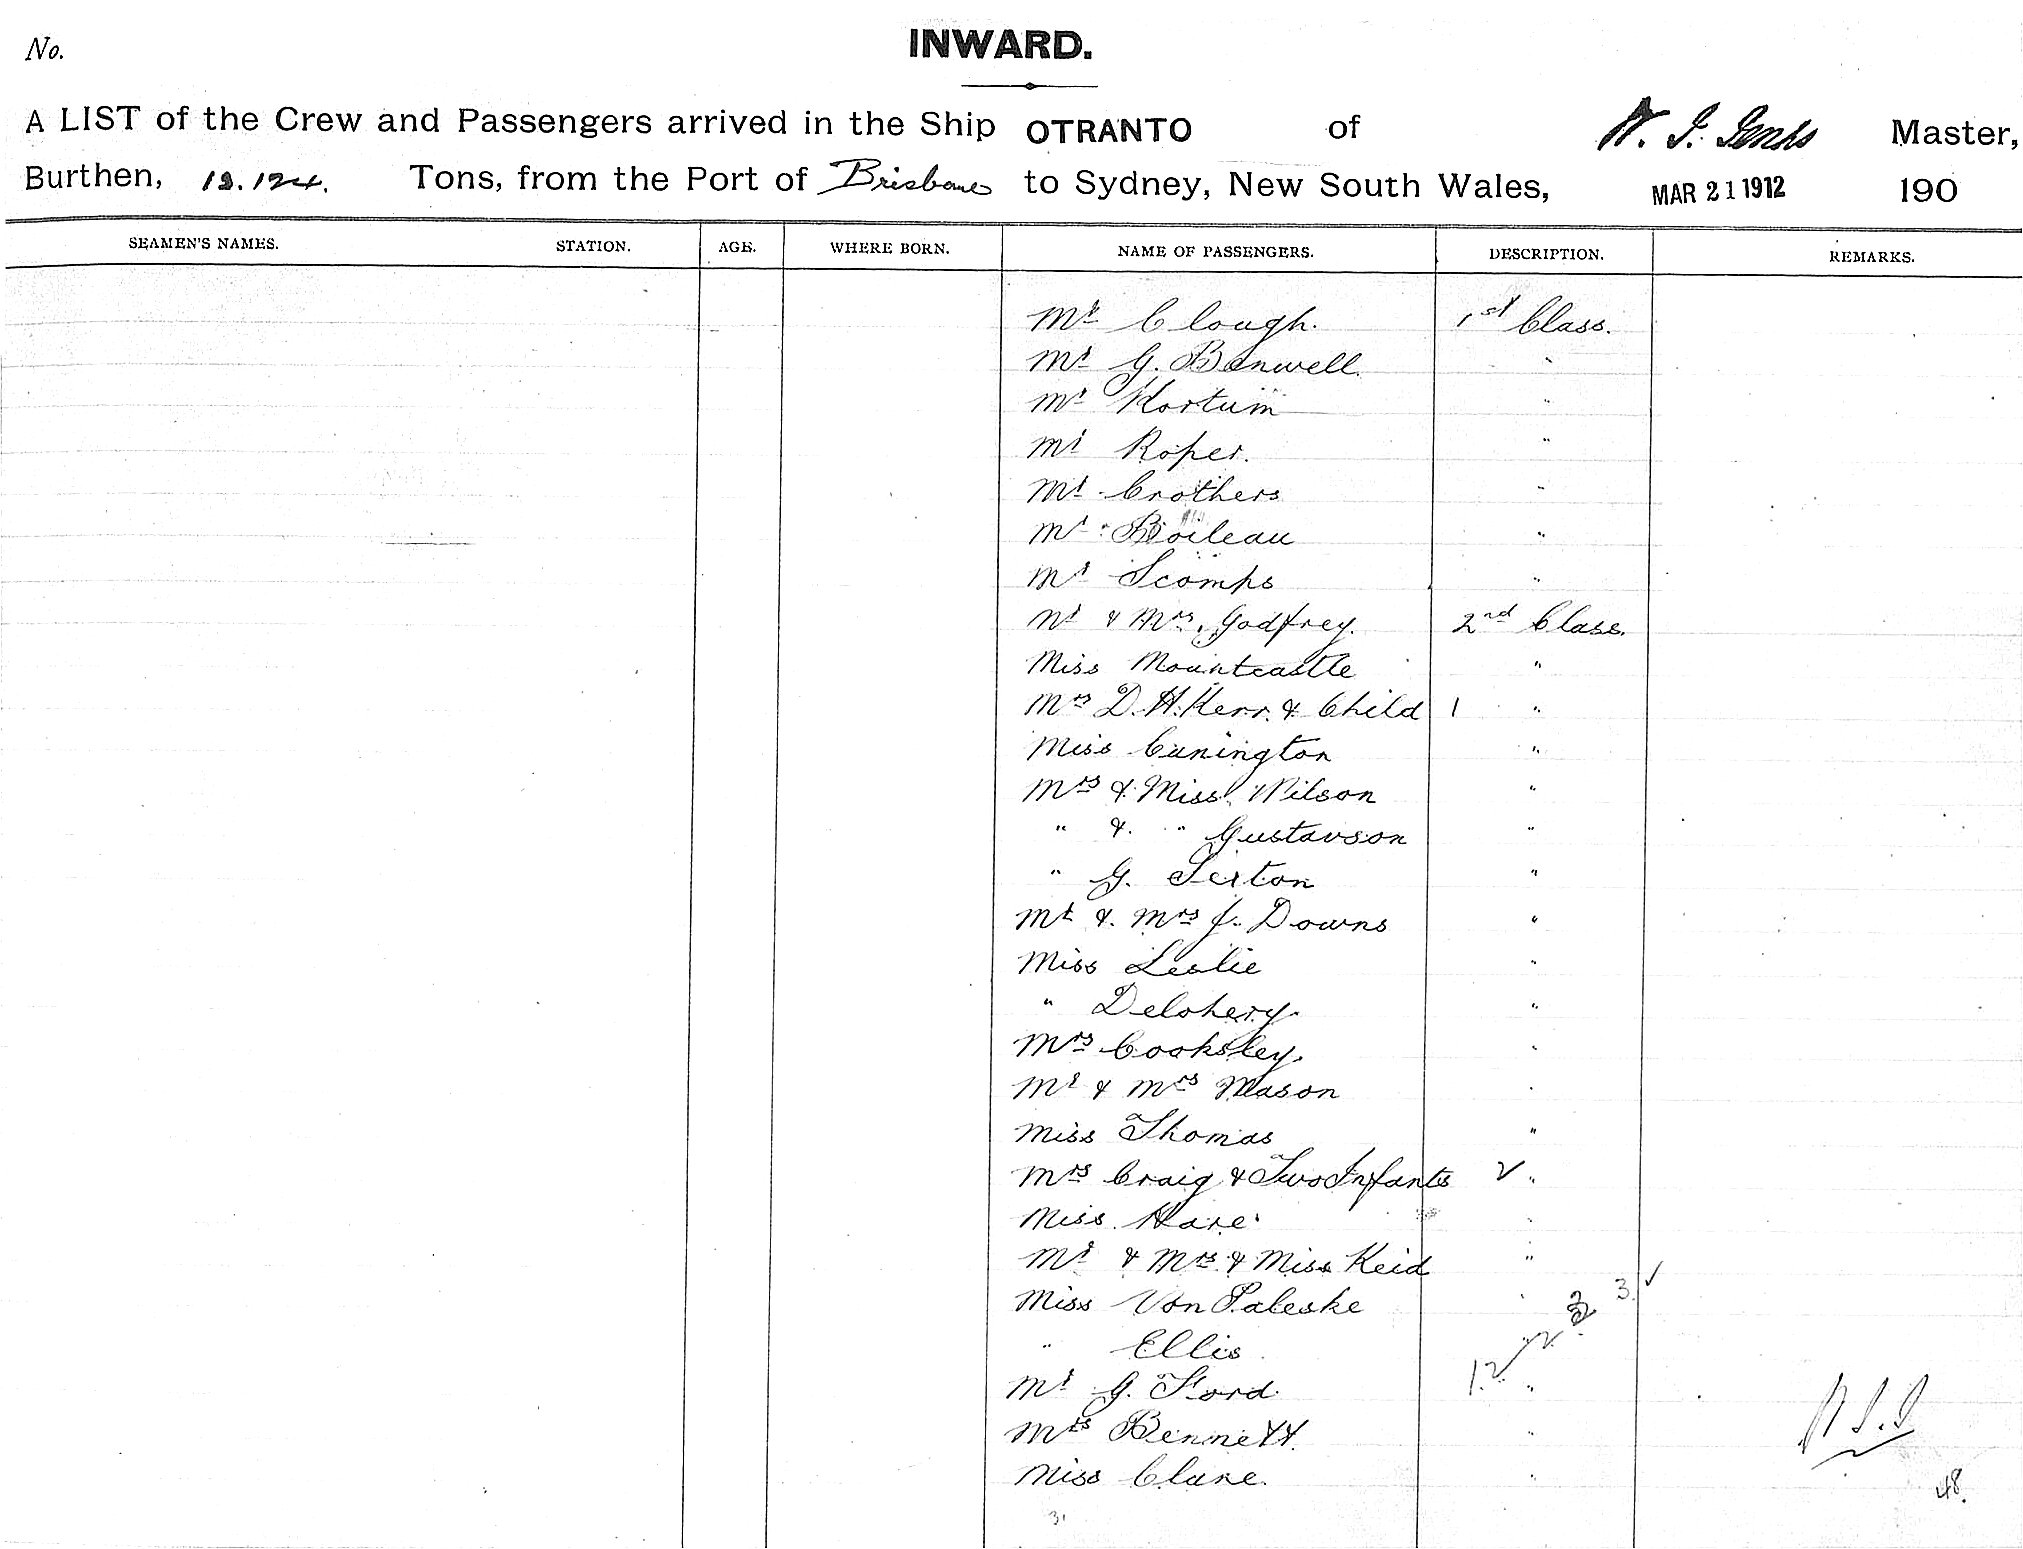 No.
INWARD.
A LIST of the Crew and Passengers arrived in the Ship OTRANTO of W. J. Jenks Master,
Burthen, 12.124. Tons, from the Port of Brisbane to Sydney, New South Wales, MAR 21 1912 190
SEAMEN'S NAMES. STATION. AGE. WHERE BORN. NAME OF PASSENGERS. DESCRIPTION. REMARKS.
Mr Clough. 1st Class.
Mr G. Banwell "
Mr Kortum "
Mr Roper. "
Mr Crothers "
Mr Boileau "
Mr Scomps "
Mr & Mrs Godfrey. 2nd Class.
Miss Mountcastle "
Mrs D. H. Kerr & Child 1 "
Miss Cunington "
Mrs & Miss Wilson "
" & " Gustavson "
" G. Sexton "
Mr & Mrs J. Downs "
Miss Leslie "
" Delohery. "
Mrs Cooksley. "
Mr & Mrs Mason "
Miss Thomas "
Mrs Craig & Two Infants 2 "
Miss Hare "
Mr & Mrs & Miss Keid "
Miss Von Paleske " 3
" Ellis
Mr G. Ford. 12 "
Mrs Bennett. "
Miss Clune. "
48.
31